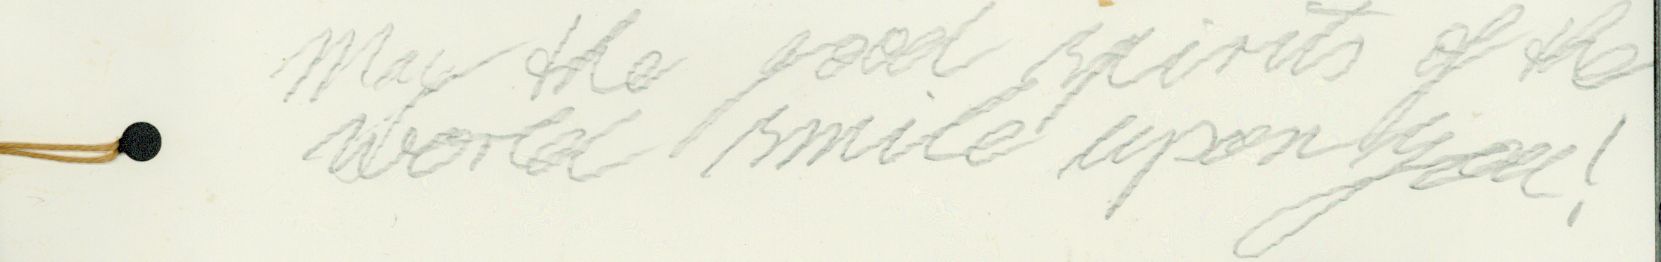 May the good spirits of the
World smile upon you!